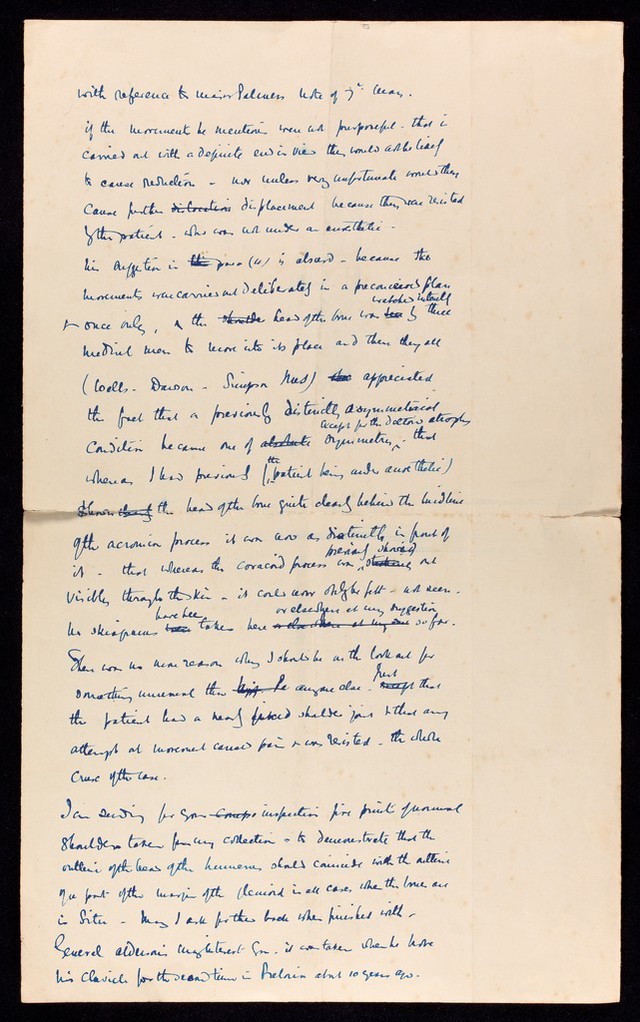 with reference to Major Palmers note of 7th May.
if the movement he mentions were not purposeful - that is
carried out with a definite end in view they would not be likely
to cause reduction - nor unless very unfortunate would they
cause further dislocation displacement because they were resisted
by the patient - who was not under an anaesthetic -
his suggestion in the para (a) is absurd - because the
movements were carried out deliberately in a preconceived plan
watched intently
+ once only, & the head of the bone was by three
medical men to move into its place and then they all
(Wells - Dawson - Simpson) appreciated
the fact that a previously distinctly asymmetrical
except for the Deltoid atrophy
condition became one of absolute symmetry, that
the
whereas I had previously (patient being under anaesthetic)
shown clearly the head of the bone quite clearly behind the midline
of the acromion process it was now as distinctly in front of
previously
it - that whereas the coracoid process was out
visibly through the skin - it could now only be felt - not seen.
have been or elsewhere at my suggestion
No skiagrams taken here or elsewhere at my so far.
There was no more reason why I should be on the look out for
something unusual than anyone else - except that
the patient had a nearly fixed shoulder joint & that any
attempt at movement caused pain & was resisted - the whole
crux of the case.
I am sending for your inspection five prints of normal
shoulders taken from my collection - to demonstrate that the
outline of the head of the humerus should coincide with the outline
of a part of the margin of the glenoid in all cases when the bones are
in situ - May I ask for them back when finished with -
General Aldersons might interest you - it was taken when he broke
his clavicle for the second time in Pretoria about 10 years ago.